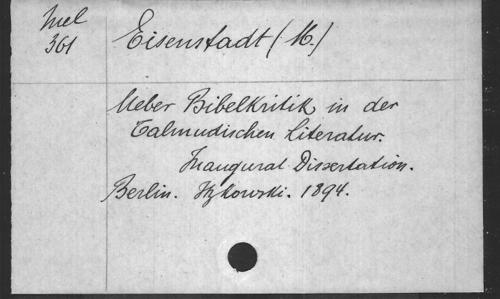 Mel
361
Eisenstadt (M.)
Ueber Bibelkritik in der
Talmudischen Literatur.
Inaugural Dissertation.
Berlin. Itzkowski. 1894.